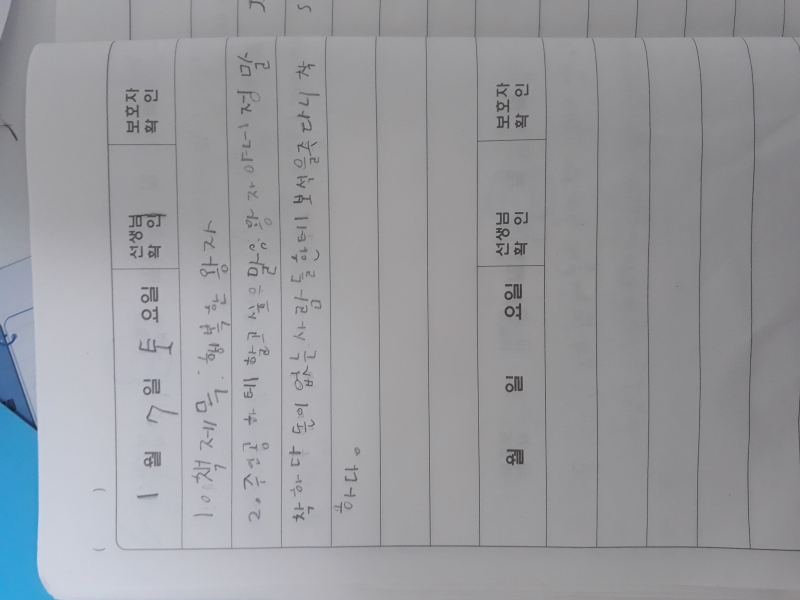 1월 7일 토요일 선생님 확인 보호자 확인
1. 책 제목: 행복한 왕자
2. 주인공 한테 하고 싶은 말: 왕자야 너 정말
착하다 돈이 없는 사람들한테 보석을 주다니 착
하다.
월 일 요일 선생님 확인 보호자 확인